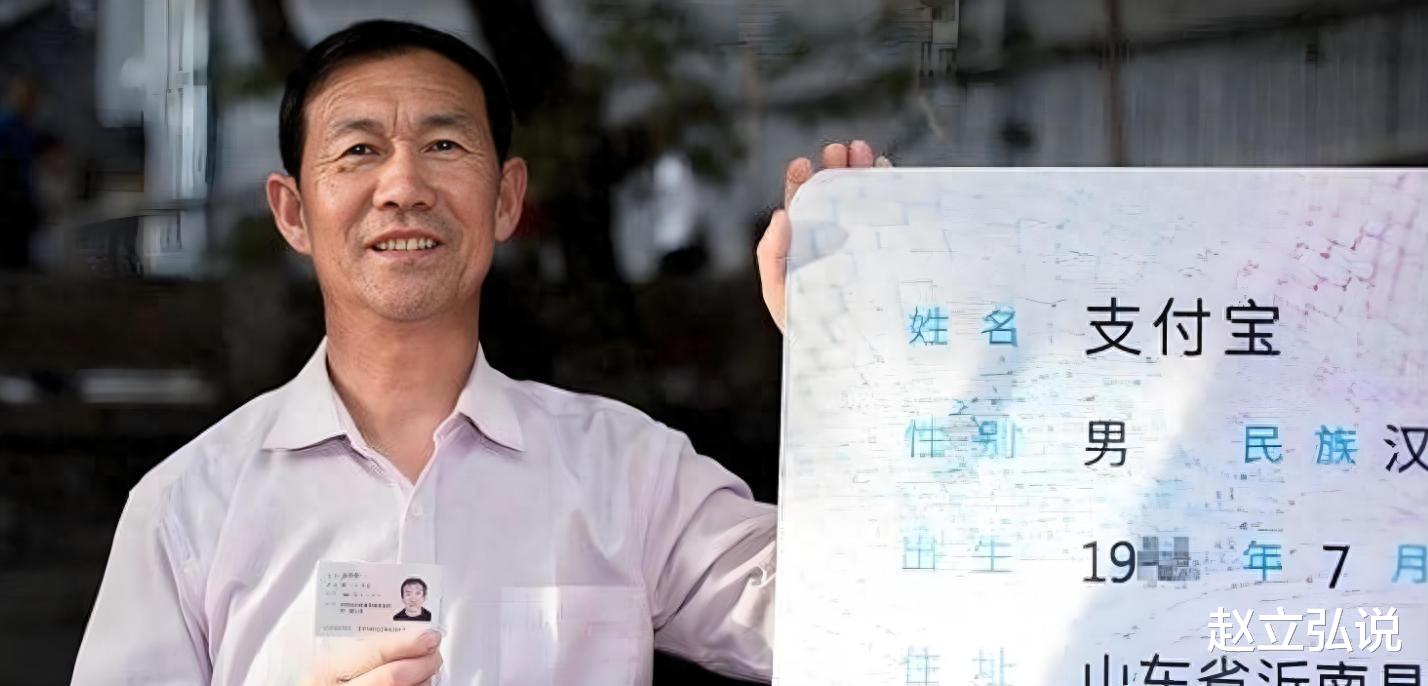 姓名 支付宝
性别 男 民族 汉
出生 19 年 7 月
住址 山东省沂南县
赵立弘说